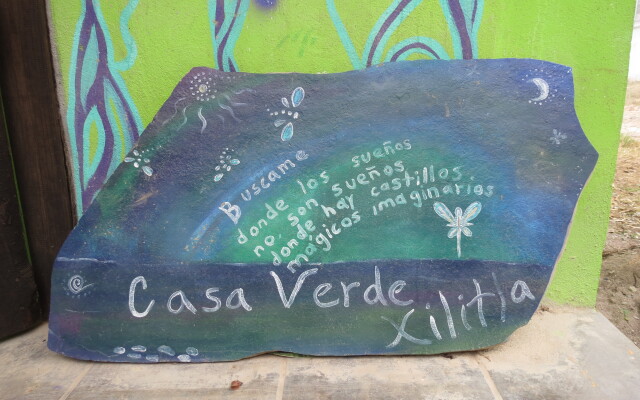 Buscame
donde los sueños
no son sueños
donde hay castillos.
mágicos imaginarios
Casa Verde
Xilitla